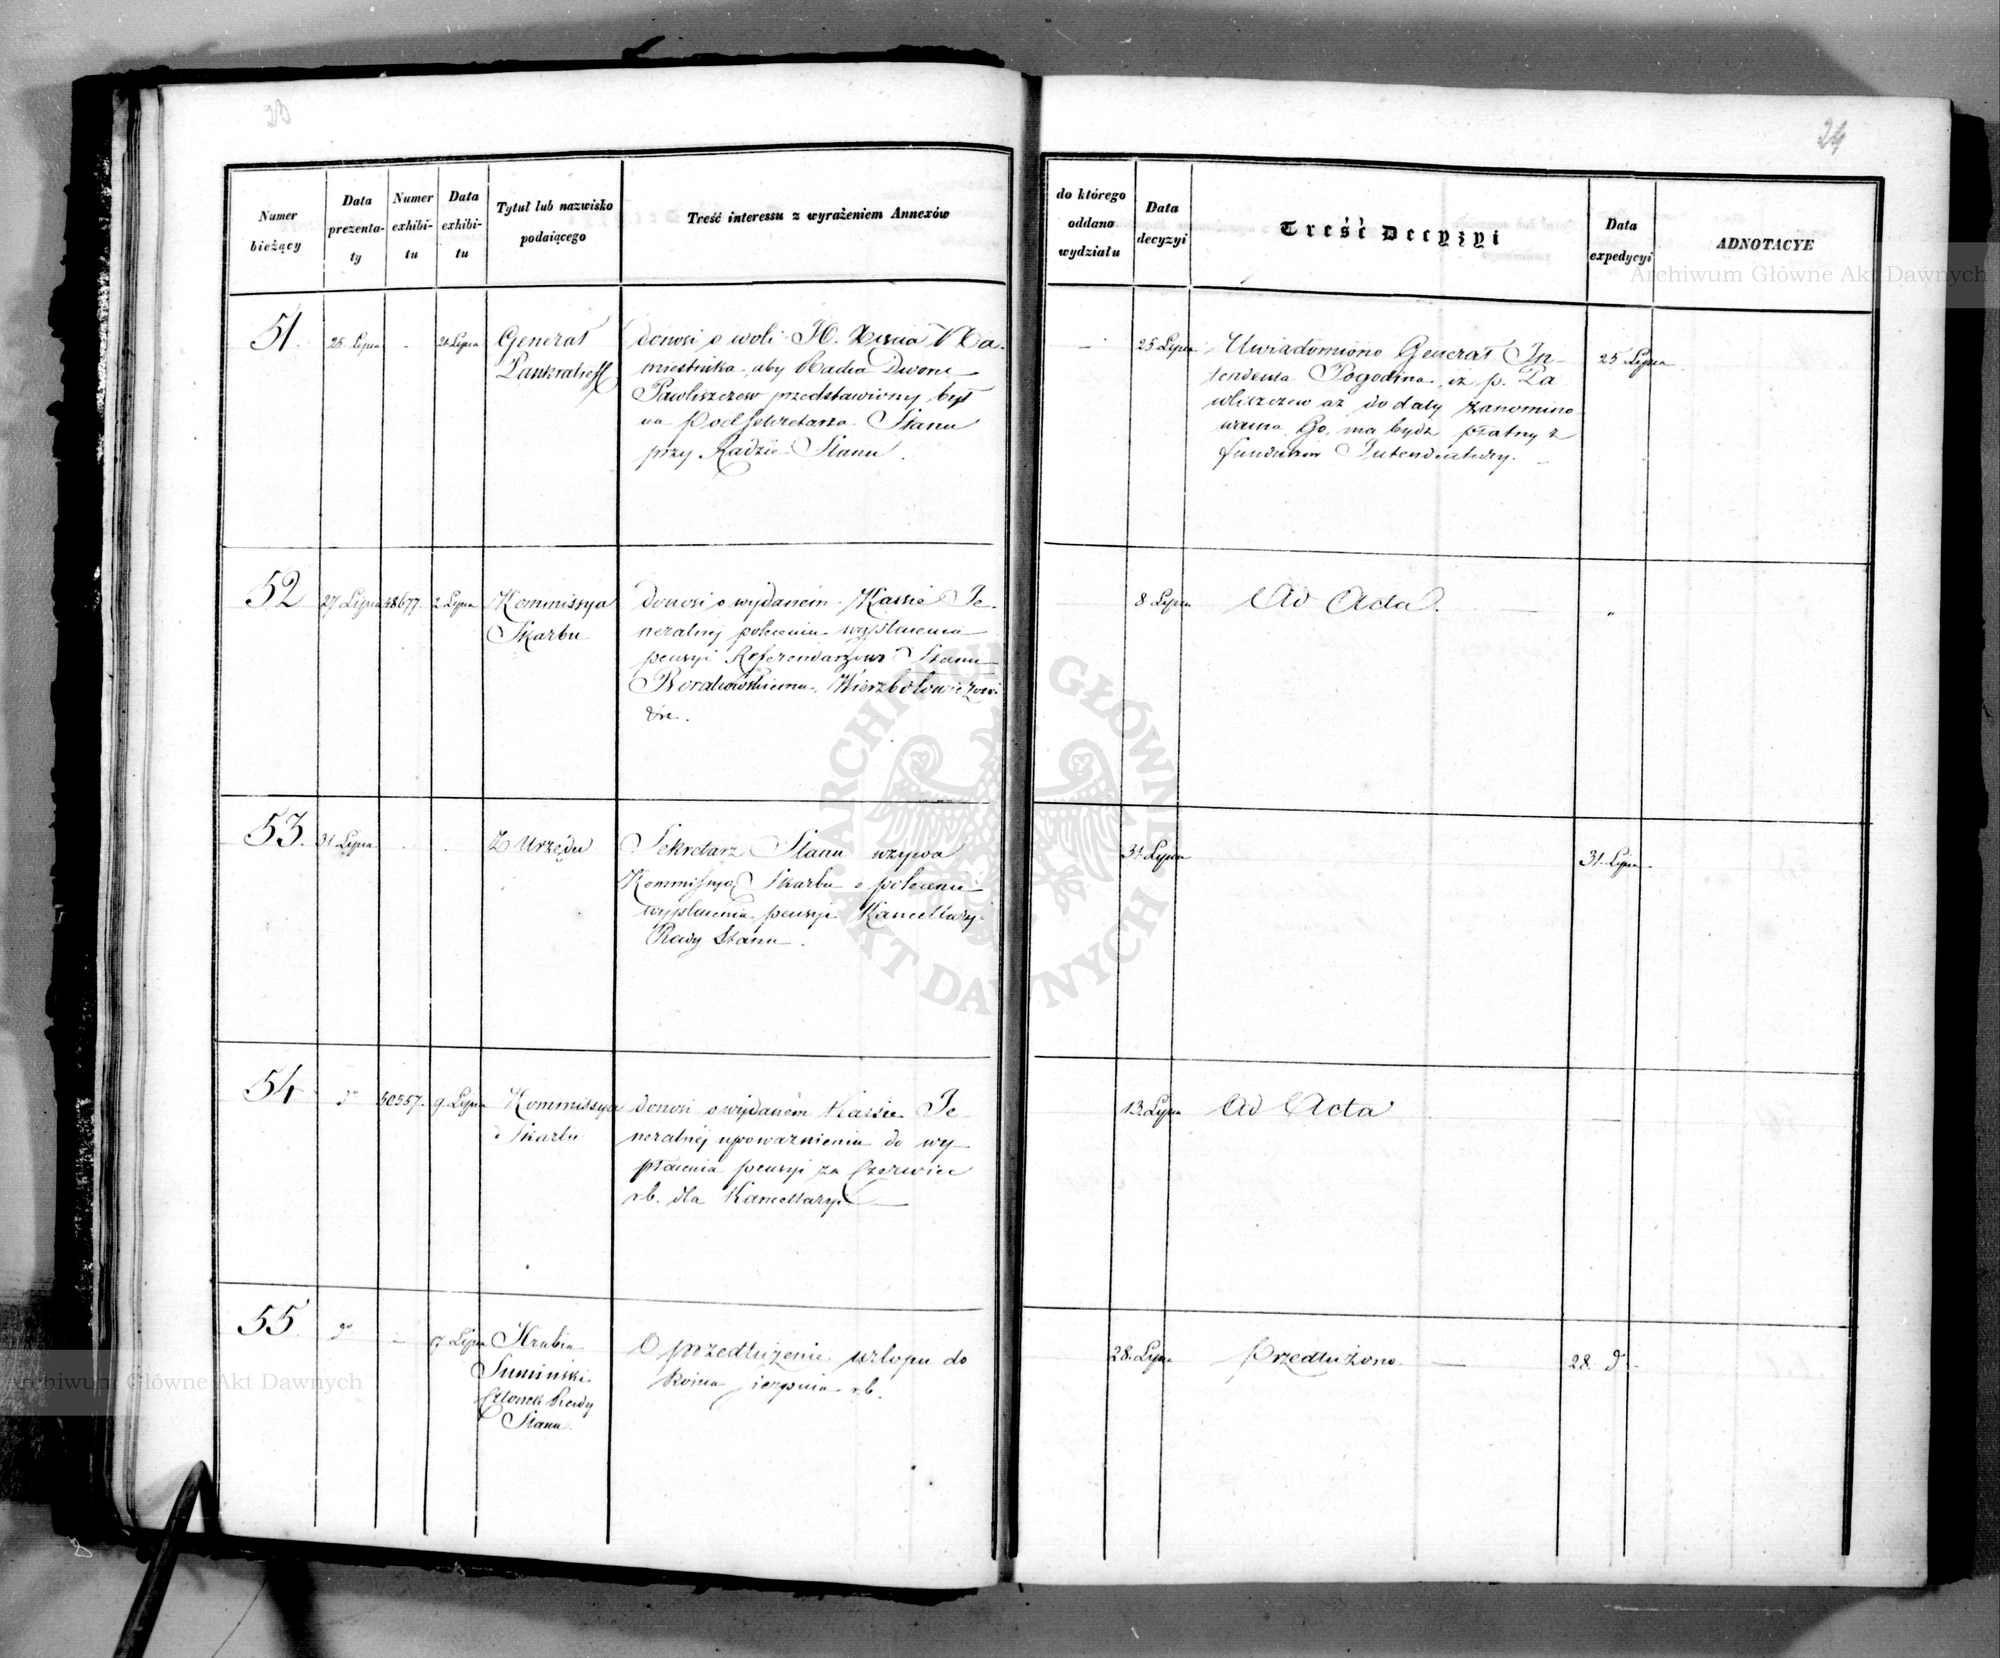 24
Numer
bieżący
Data
prezenta-
ty
Numer
exhibi-
tu
Data
exhibi-
tu
Tytuł lub nazwisko
podaiącego
Treść interessu z wyrażeniem Annexów
do którego
oddano
wydziału
Data
decyzyi
Treść Decyzyi
Data
expedycyi
ADNOTACYE
51.
25 Lipca
21 Lipca
Generał
Pankratieff
donosi o woli
Na-
miestnika, aby Radca Dworu
Pawliszczew przedstawiony był
na Podsekretarza Stanu
przy Radzie Stanu.
25 Lipca
Uwiadomiono Generał In-
tendenta Pogodina, iż p. Pa
wliszczew aż do daty zanomino
wania Go, ma bydź płatny z
funduszów Intendentury.
25 Lipca
52
27 Lipca
48677.
2 Lipca
Kommissya
Skarbu
donosi o wydaniem Kassie Je-
neralnej polecenia wypłacenia
pensyi Referendarzom Stanu
Wierzbołowiczowi
8 Lipca
Ad Acta.
53.
31 Lipca
Z Urzędu
Sekretarz Stanu wzywa
Kommissyą Skarbu o polecenie
wypłacenia pensyi Kancellaryi
Rady Stanu.
31 Lipca
31. Lipca
54
do
50557.
9. Lipca
Kommissya
Skarbu
donosi o wydaniem Kassie Je-
neralnej upoważnieniu do wy-
płacenia pensyi za Czerwiec
r.b. dla Kancellaryi
13. Lipca
Ad Acta
55.
do
17 Lipca
Hrabia
Sumiński
Członek Rady
Stanu.
O przedłużenie urlopu do
końca sierpnia r.b.
28. Lipca
Przedłużono.
28. do
Archiwum Główne Akt Dawnych
ARCHIWUM GŁÓWNE AKT DAWNYCH
Archiwum Główne Akt Dawnych